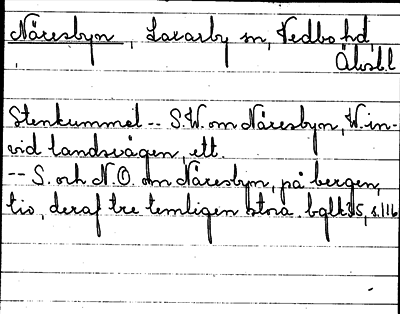 Näresbyn, Laxarby sn, Vedbo hd,
Älvsb.l
Stenkummel -- S.W. om Näresbyn, W. in-
vid landsvägen, ett.
-- S. och N.O. om Näresbyn, på bergen,
tio, deraf tre temligen stora. bglk 35, s. 116